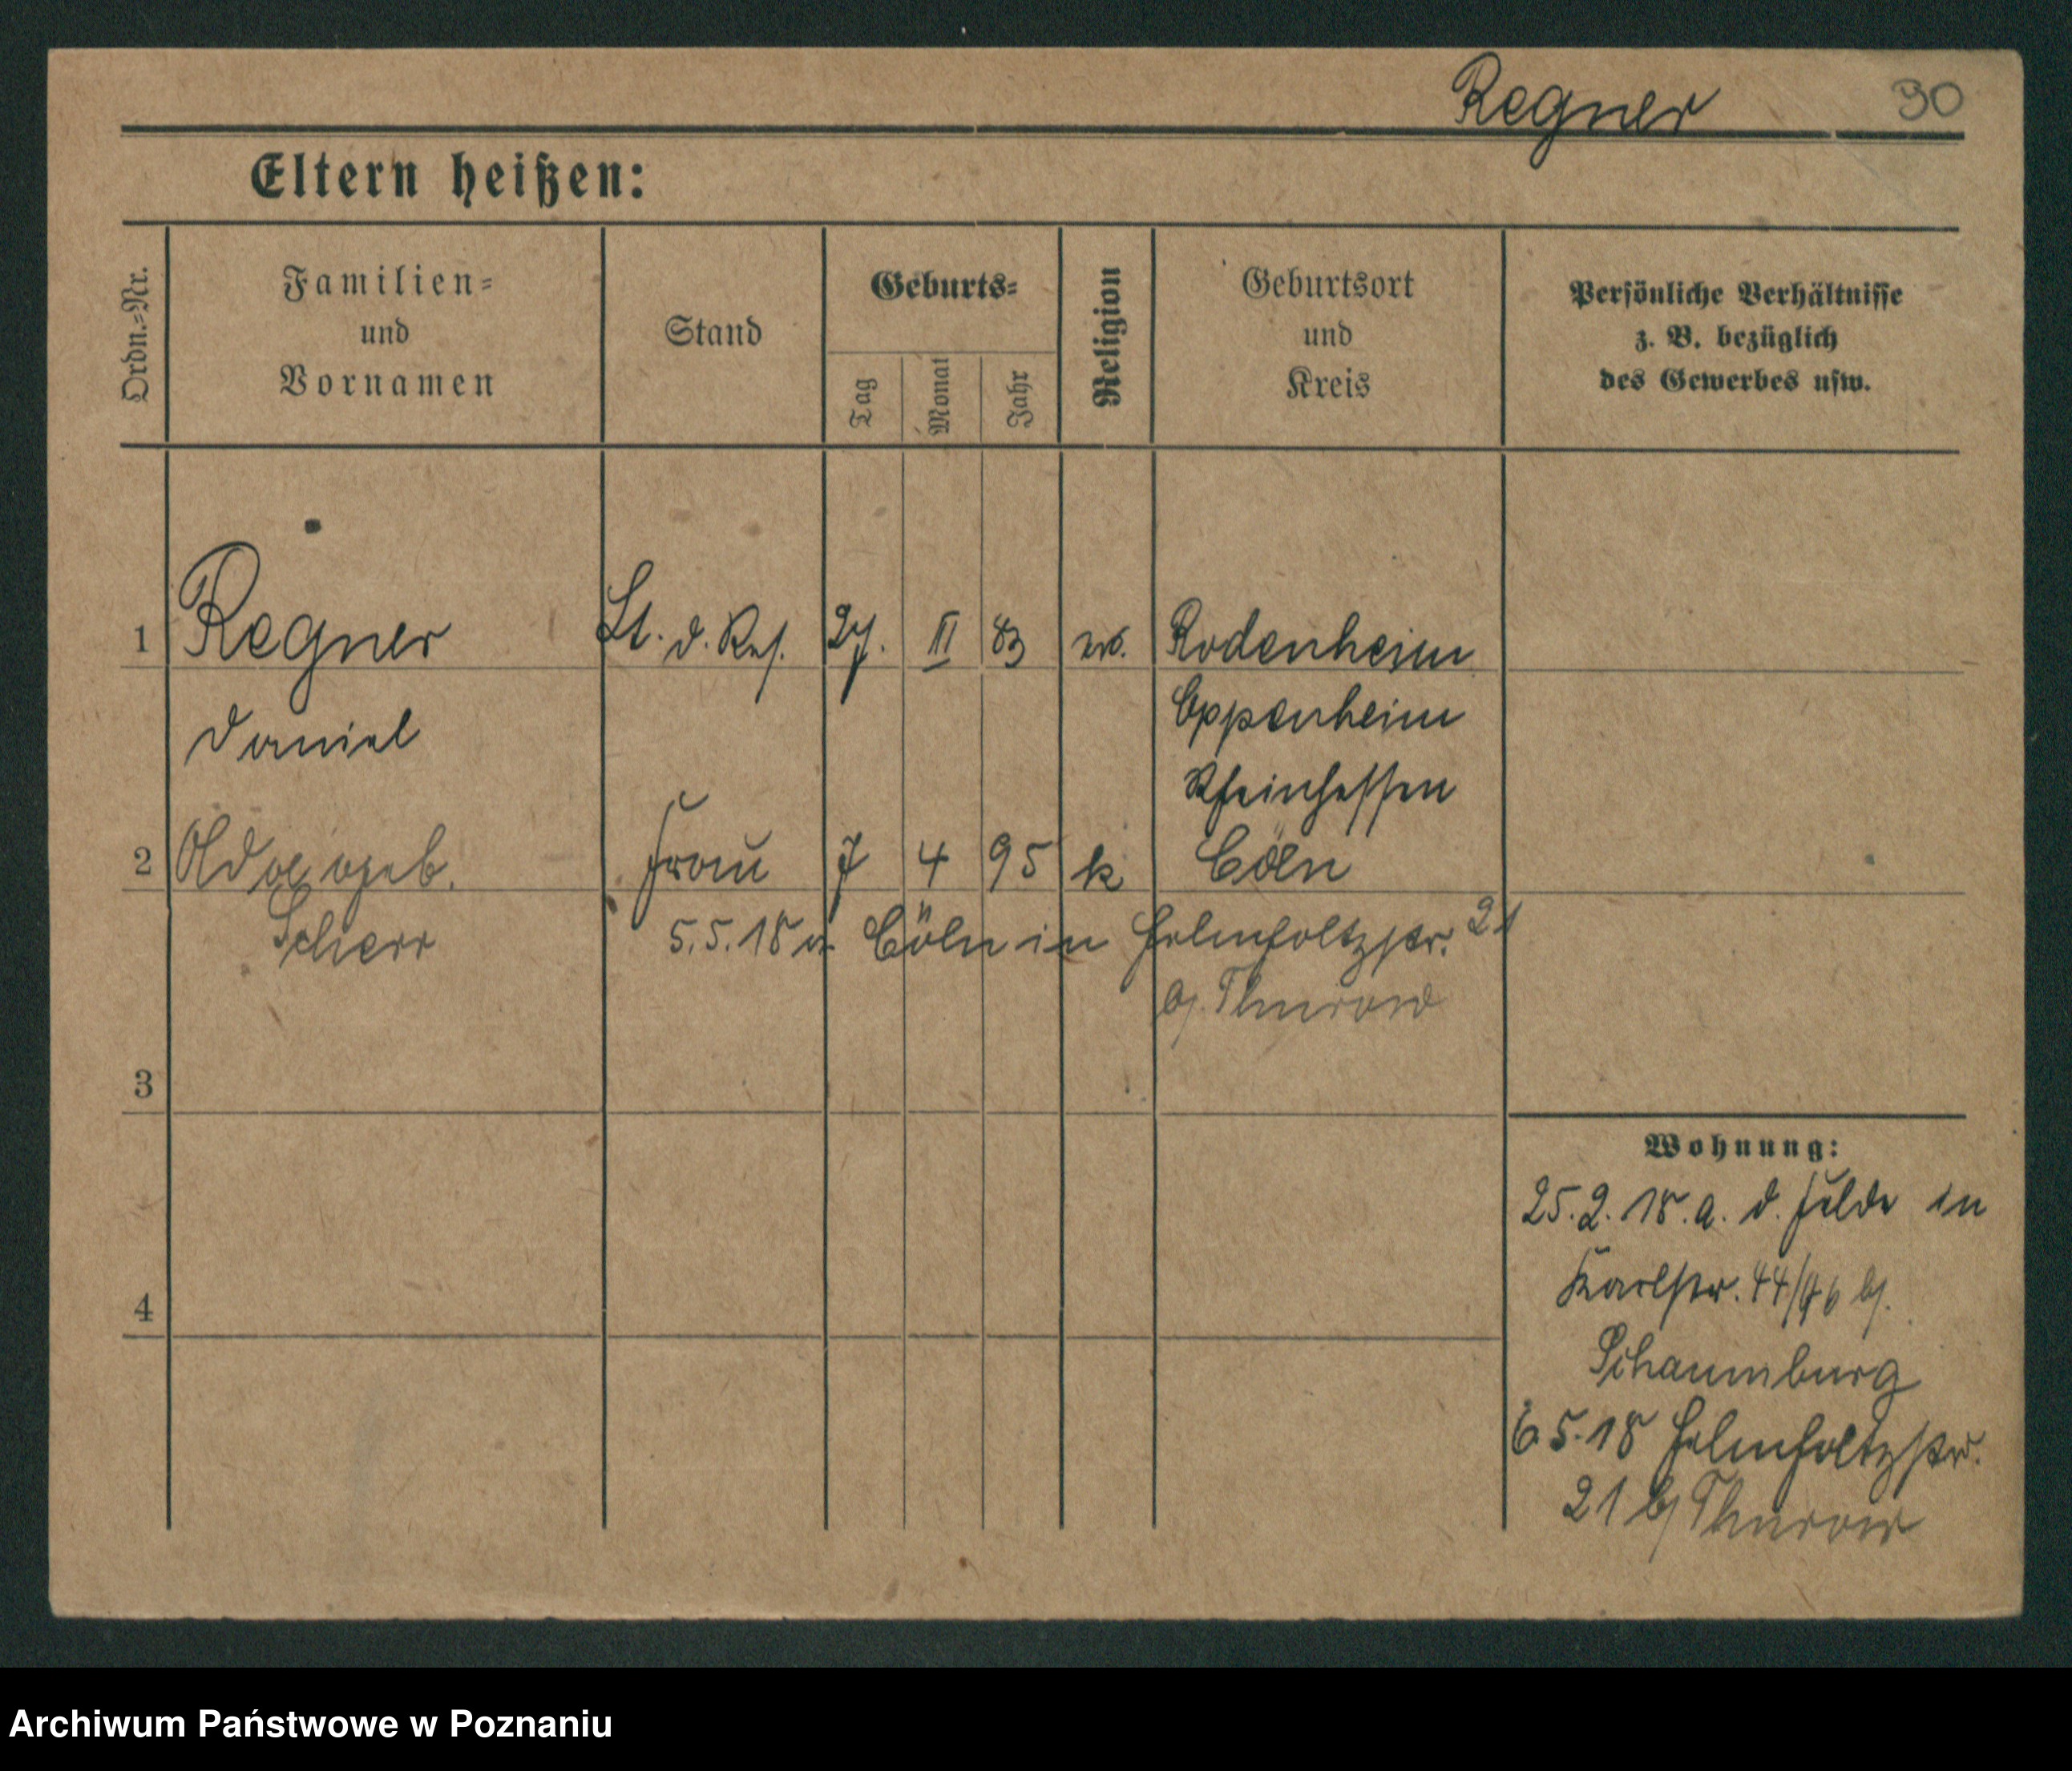 Regner 90
Eltern heißen:
Ordn.-Nr.
Familien-
und
Vornamen
Stand
Geburts-
Tag
Monat
Jahr
Religion
Geburtsort
und
Kreis
Persönliche Verhältnisse
z. B. bezüglich
des Gewerbes usw.
1 Regner Lt. d. Res. 27. II 83 Rodenheim
Daniel Oppenheim
Rheinhessen
2 geb. Frau 7 4 95 k Cöln
Scherr 5.5.18 v. Cöln in Helmholtzstr. 21
b/ Thurow
3
4
Wohnung:
25.2.18. a. d. Felde in
Karlstr. 44/46 b/.
Schaumburg
6.5.18 Helmholtzstr.
21 b/ Thurow
Archiwum Państwowe w Poznaniu